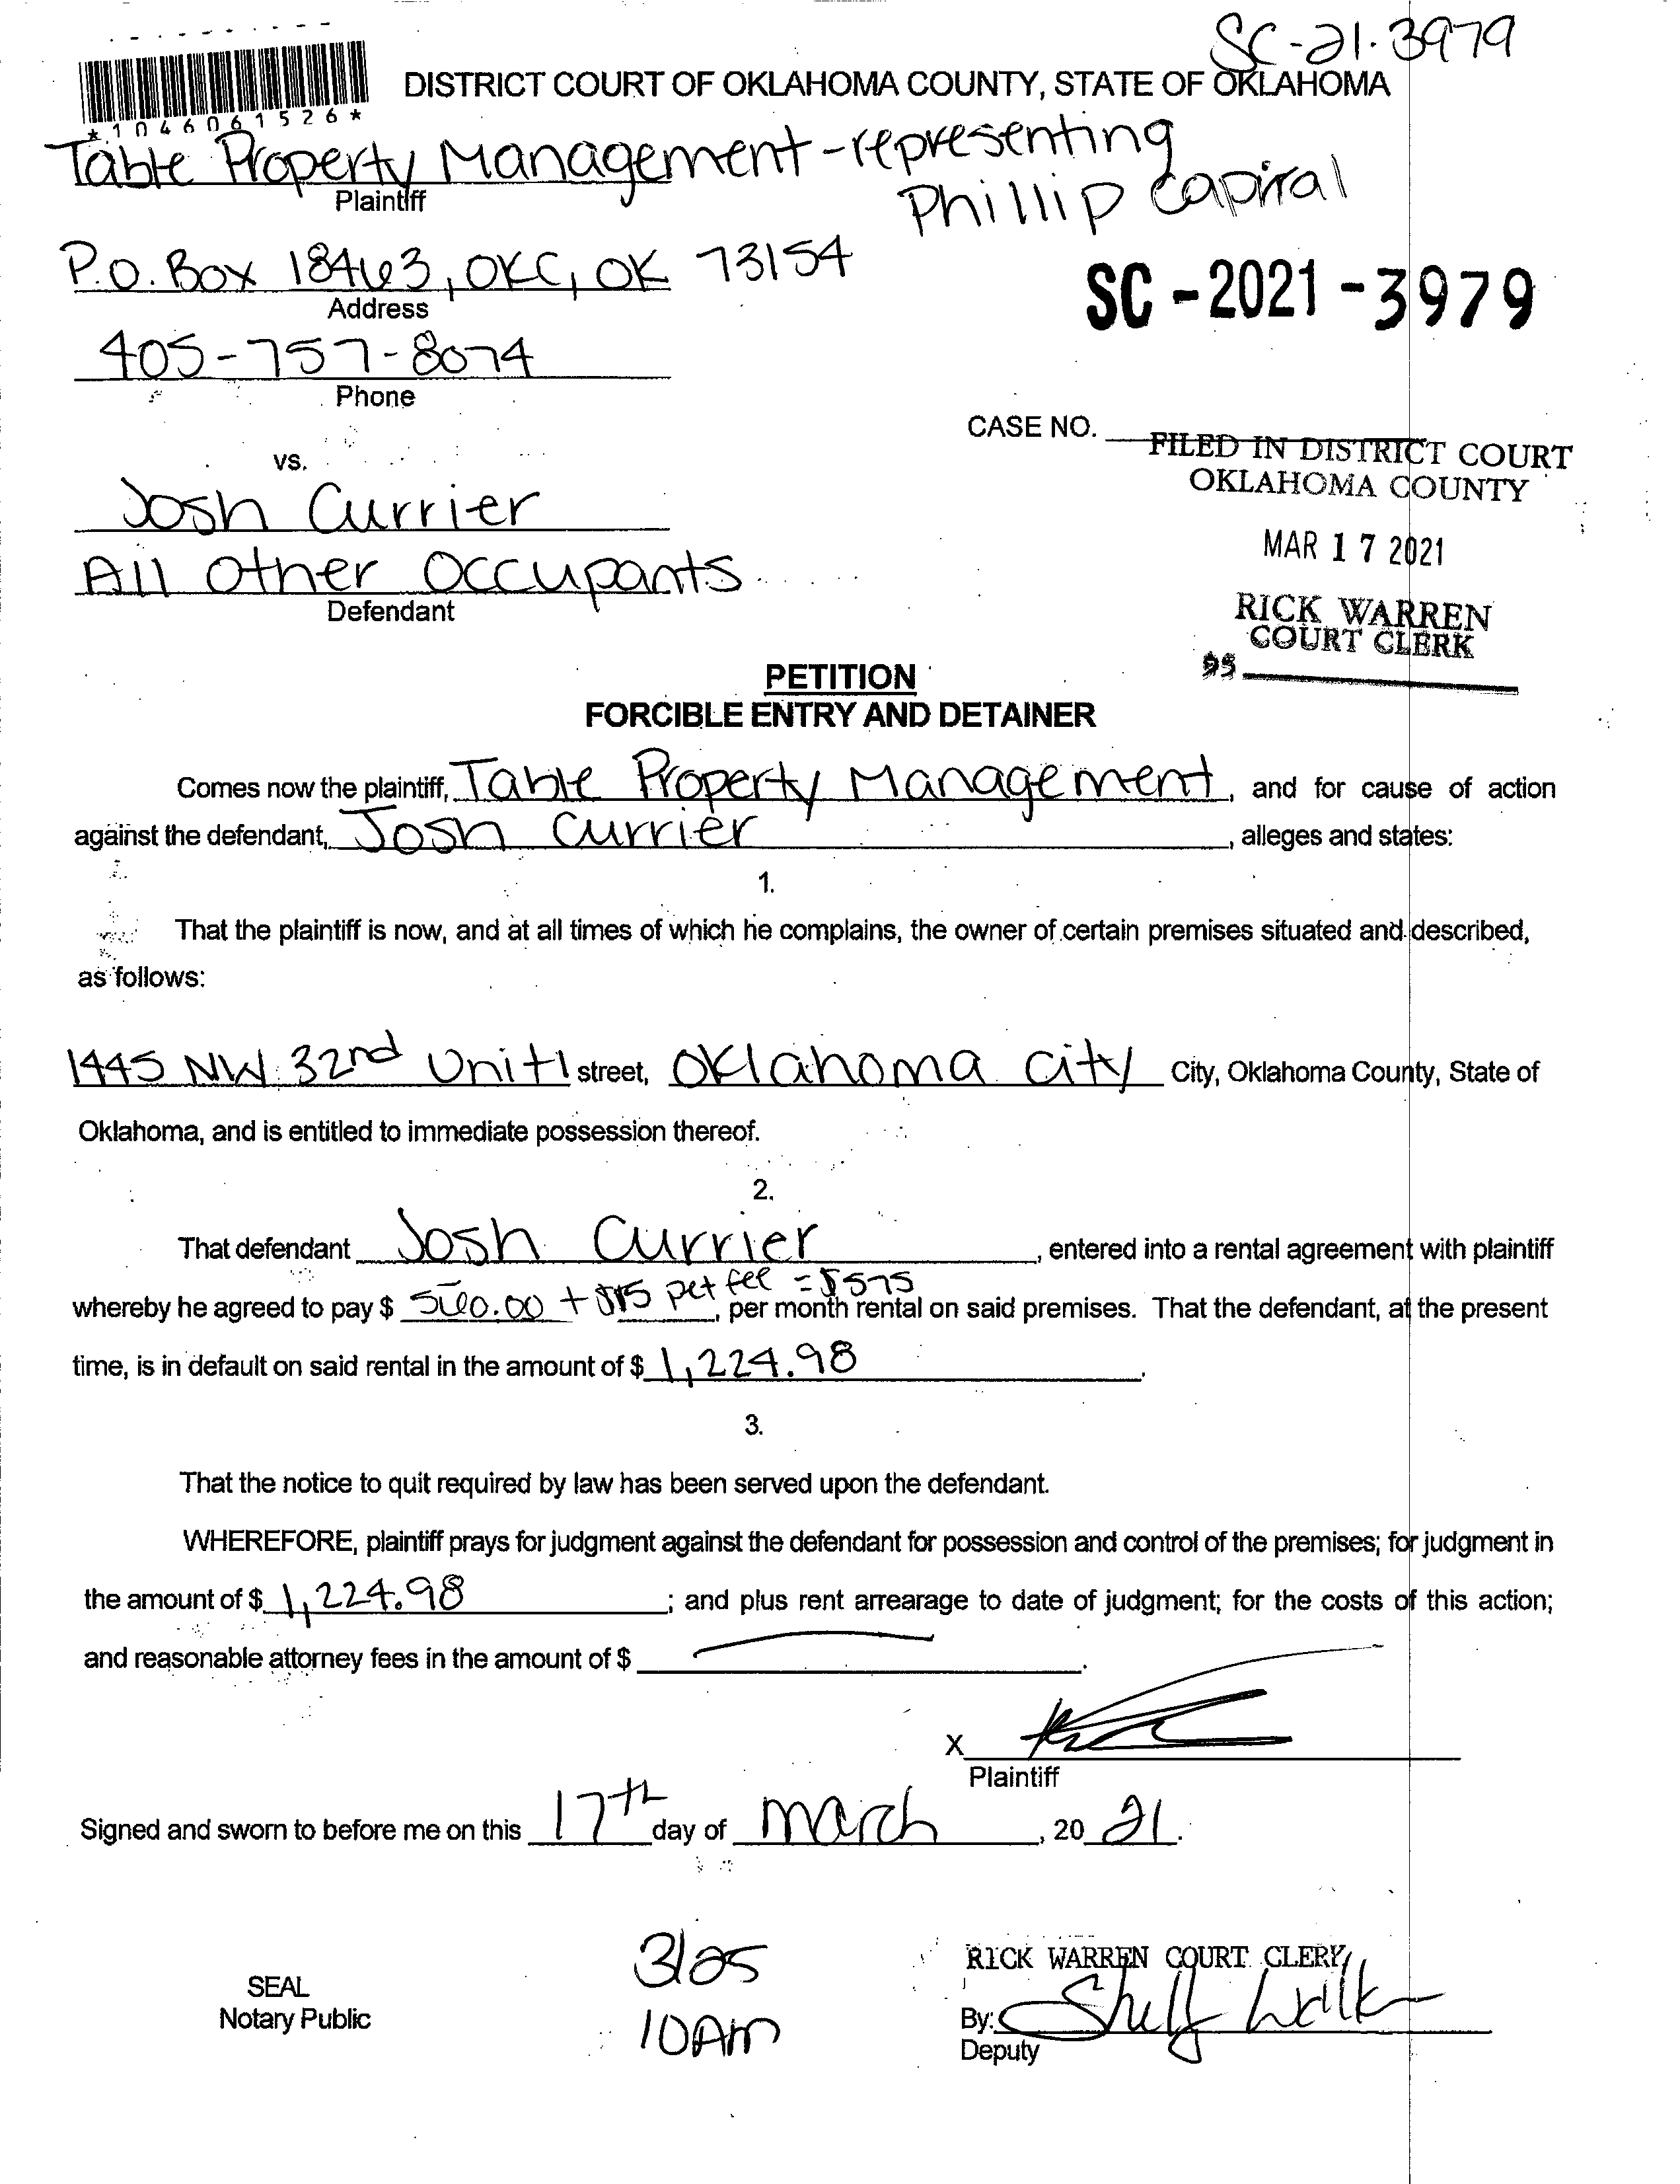 SC-21-3979
DISTRICT COURT OF OKLAHOMA COUNTY, STATE OF OKLAHOMA
*1046061526*
Table Property Management - representing
Phillip Capital
Plaintiff
P.O. Box 18463, OKC, OK 73154
Address
SC-2021-3979
405-757-8074
Phone
CASE NO.
FILED IN DISTRICT COURT
OKLAHOMA COUNTY
vs.
Josh Currier
MAR 17 2021
All Other Occupants
Defendant
RICK WARREN
COURT CLERK
95
PETITION
FORCIBLE ENTRY AND DETAINER
Comes now the plaintiff, Table Property Management, and for cause of action
against the defendant, Josh Currier, alleges and states:
1.
That the plaintiff is now, and at all times of which he complains, the owner of certain premises situated and described,
as follows:
1445 NW 32nd Unit 1 street, Oklahoma City City, Oklahoma County, State of
Oklahoma, and is entitled to immediate possession thereof.
2.
That defendant Josh Currier, entered into a rental agreement with plaintiff
whereby he agreed to pay $ 560.00 + $15 pet fee = $575, per month rental on said premises. That the defendant, at the present
time, is in default on said rental in the amount of $ 1,224.98.
3.
That the notice to quit required by law has been served upon the defendant.
WHEREFORE, plaintiff prays for judgment against the defendant for possession and control of the premises; for judgment in
the amount of $ 1,224.98; and plus rent arrearage to date of judgment; for the costs of this action;
and reasonable attorney fees in the amount of $ .
X
Plaintiff
Signed and sworn to before me on this 17th day of March, 2021.
3/25
10AM
SEAL
Notary Public
RICK WARREN COURT CLERK
By:
Deputy